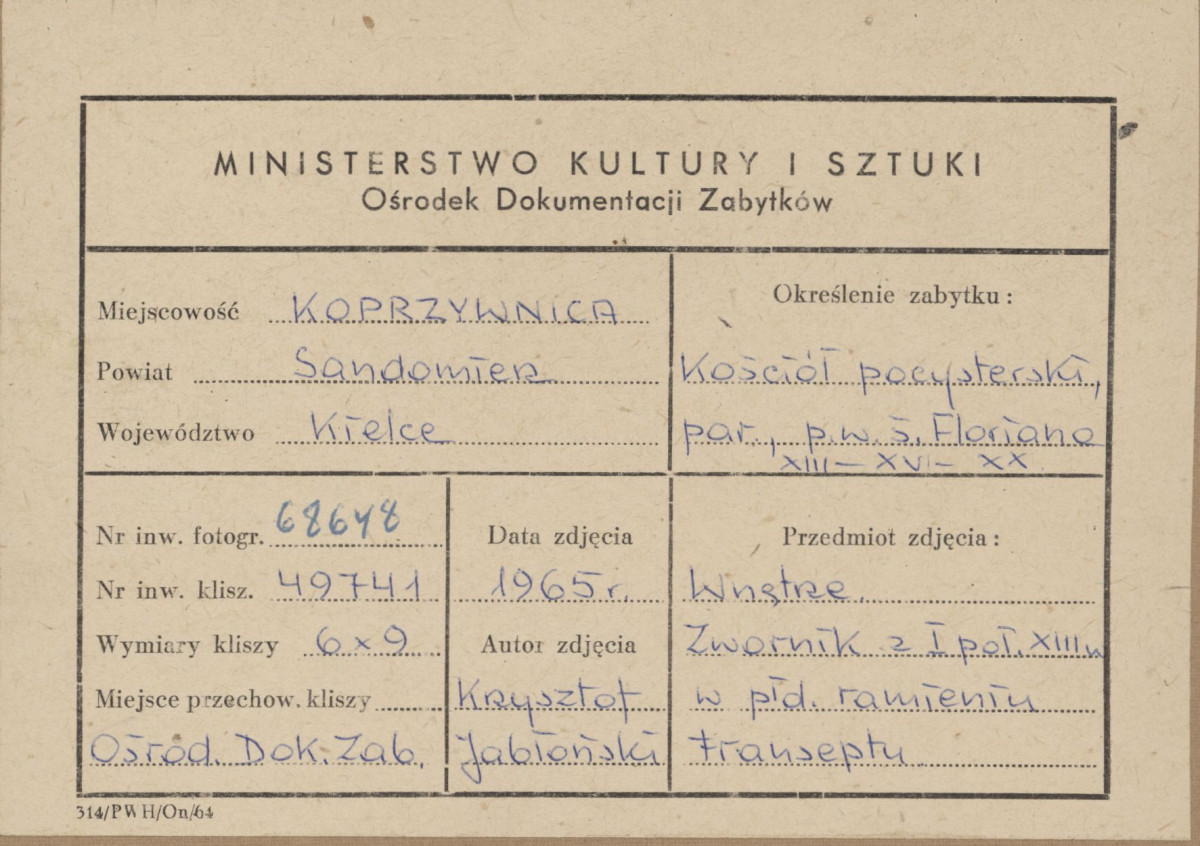 MINISTERSTWO KULTURY I SZTUKI
Ośrodek Dokumentacji Zabytków
Miejscowość KOPRZYWNICA
Powiat Sandomierz
Województwo Kielce
Określenie zabytku:
Kościół pocysterski,
par., p.w. ś. Floriana
XIII – XVI – XX
Nr inw. fotogr. 68648
Nr inw. klisz. 49741
Wymiary kliszy 6x9
Miejsce przechow. kliszy
Ośrod. Dok. Zab.
Data zdjęcia
1965 r.
Autor zdjęcia
Krzysztof
Jabłoński
Przedmiot zdjęcia:
Wnętrze.
Zwornik z I poł. XIII w
w płd. ramieniu
transeptu
314/PWH/On/64